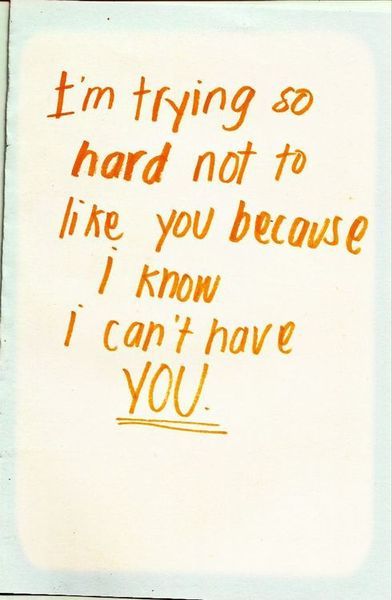 I'm trying so
hard not to
like you because
i know
i can't have
YOU.